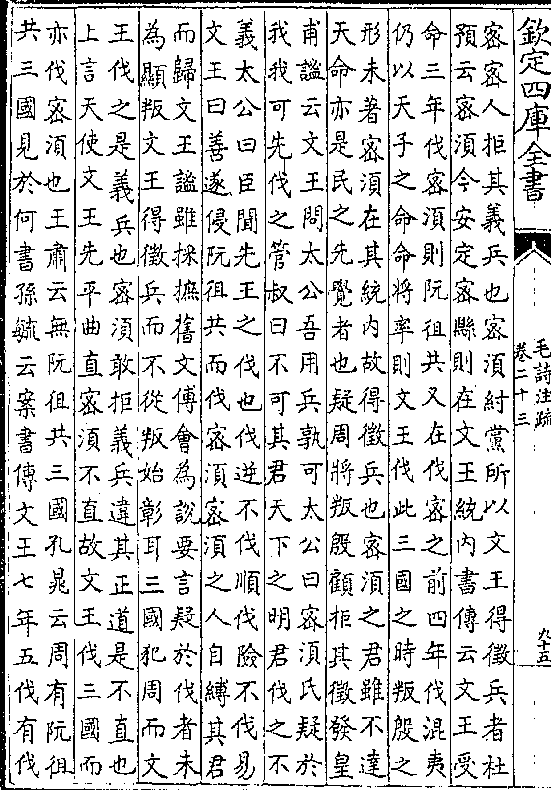 欽定四庫全書
毛詩注疏
卷二十三
九十五
密密人拒其義兵也密須紂黨所以文王得徵兵者杜
預云密須今安定密縣則在文王統內書傳云文王受
命三年伐密須則阮徂共又在伐密之前四年伐混夷
仍以天子之命命將率則文王伐此三國之時叛殷之
形未著密須在其統內故得徵兵也密須之君雖不達
天命亦是民之先覺者也疑周將叛殷顧拒其徵發皇
甫謐云文王問太公吾用兵孰可太公曰密須氏疑於
我我可先伐之管叔曰不可其君天下之明君伐之不
義太公曰臣聞先王之伐也伐逆不伐順伐險不伐易
文王曰善遂侵阮徂共而伐密須密須之人自縛其君
而歸文王謐雖採摭舊文傳會為說要言疑於伐者未
為顯叛文王得徵兵而不從叛始彰耳三國犯周而文
王伐之是義兵也密須敢拒義兵違其正道是不直也
上言天使文王先平曲直密須不直故文王伐三國而
亦伐密須也王肅云無阮徂共三國孔晁云周有阮徂
共三國見於何書孫毓云案書傳文王七年五伐有伐